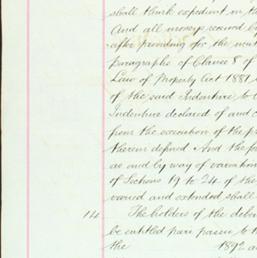 shall think expedient in th
And all moneys received by
after providing for the matt
paragraphs of Clause 8 of
Law of Property Act 1881
of the said Indenture to
Indenture declared of and c
from the execution of the p
therein default And the fo
as and by way of variation
of Sections 19 to 24 of the
varied and extended shall
14 The holders of the deben
be entitled pari passu to th
the 1892 a